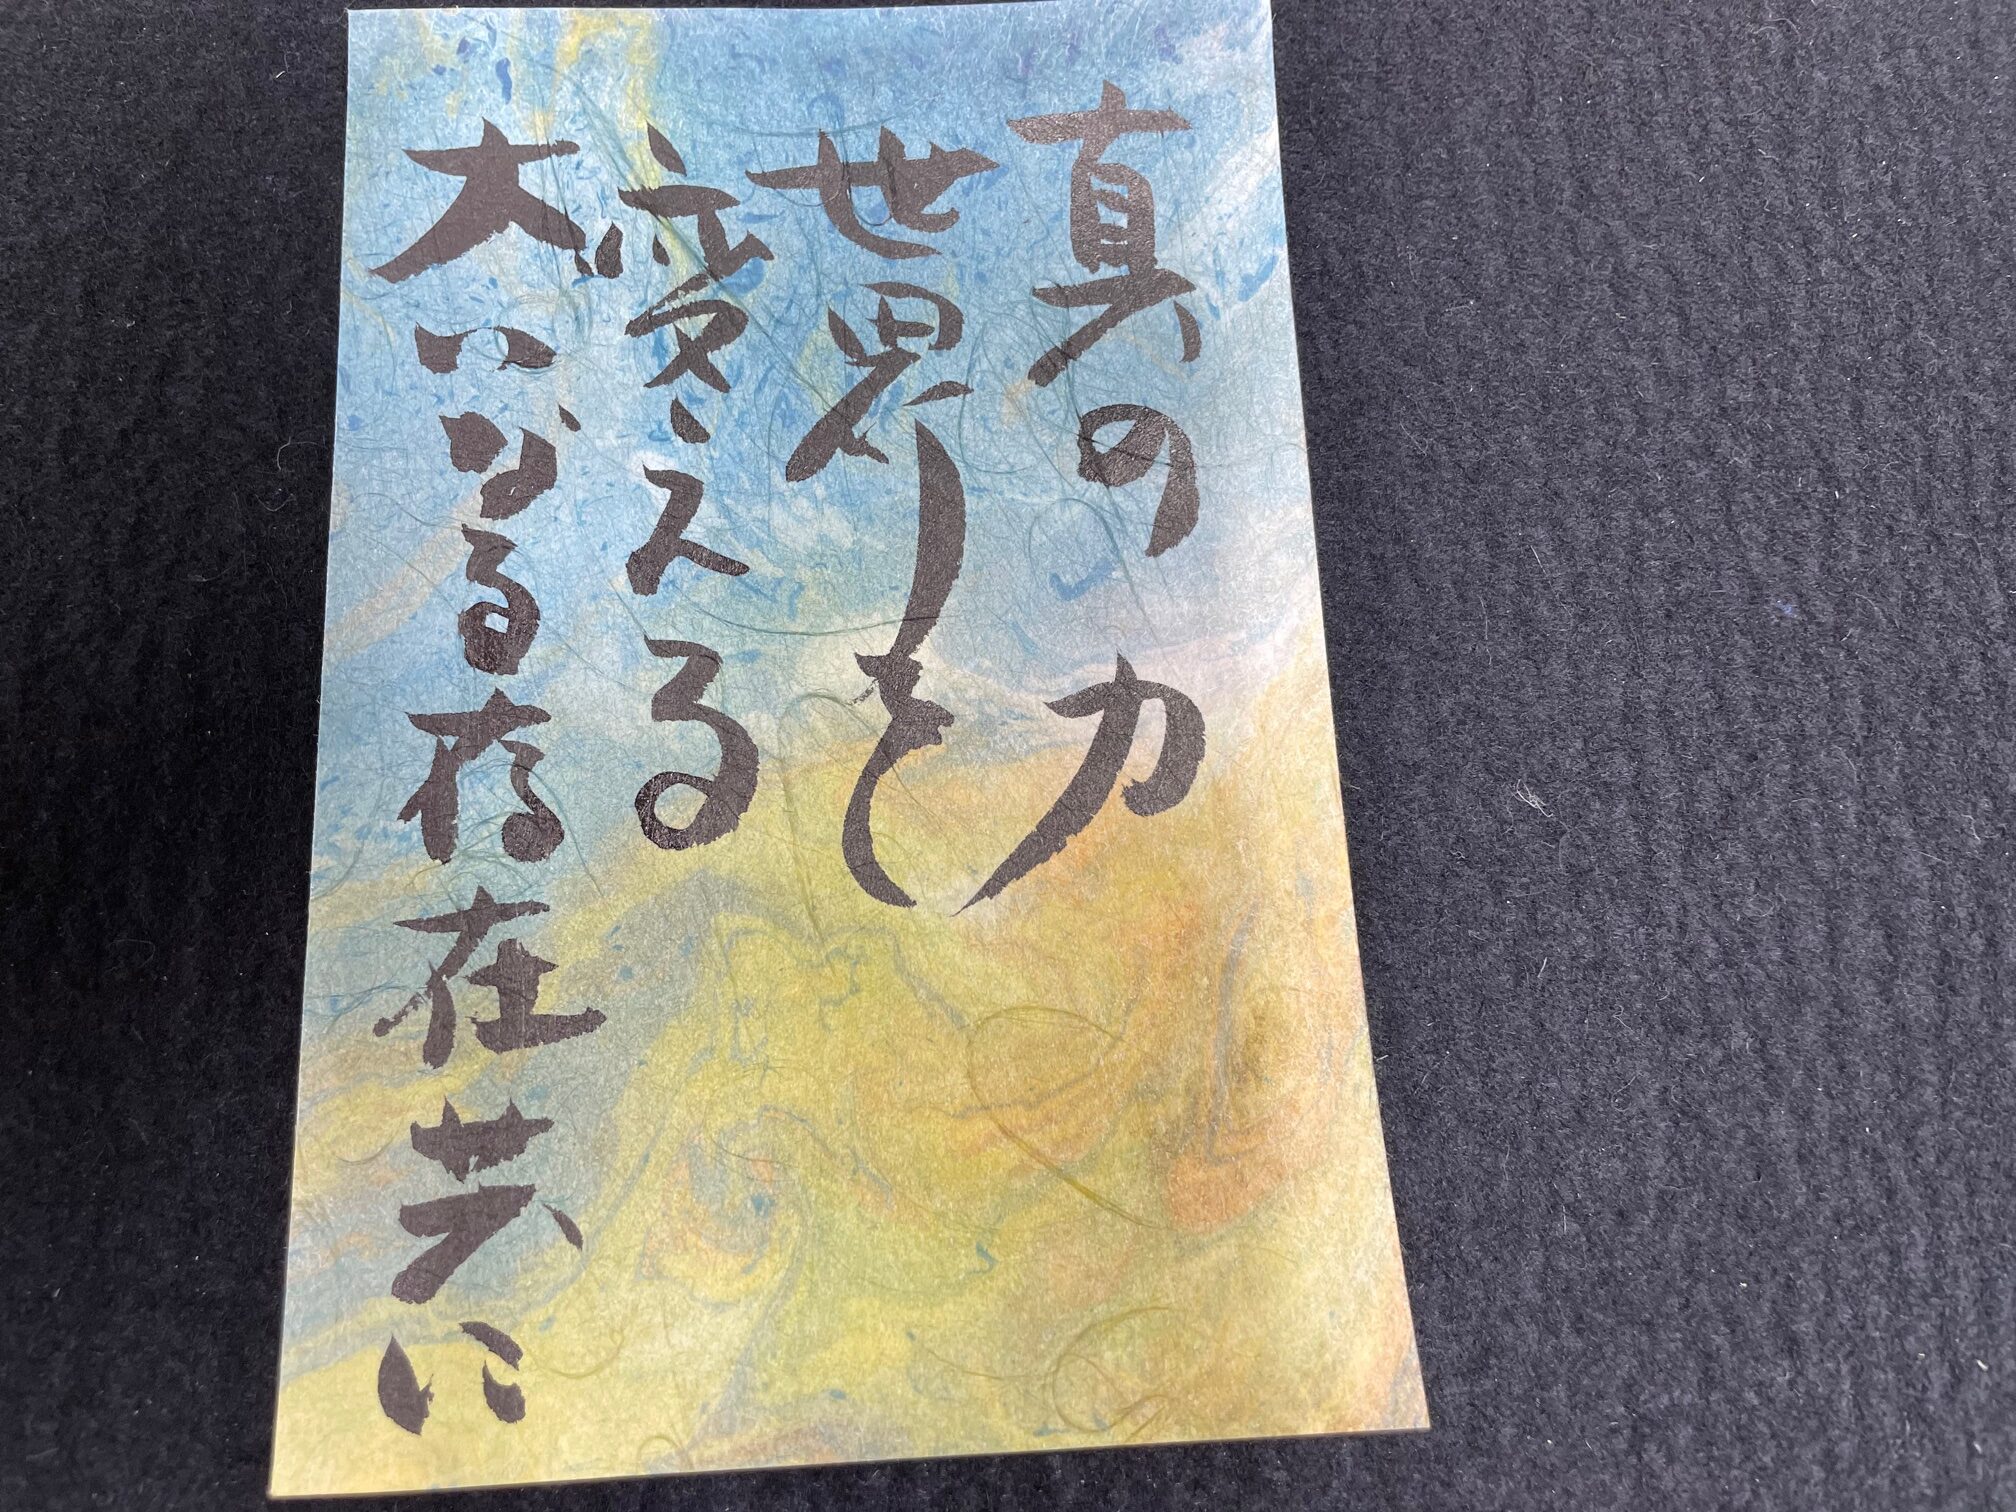 真の力
世界しも
変える
大いなる存在共に